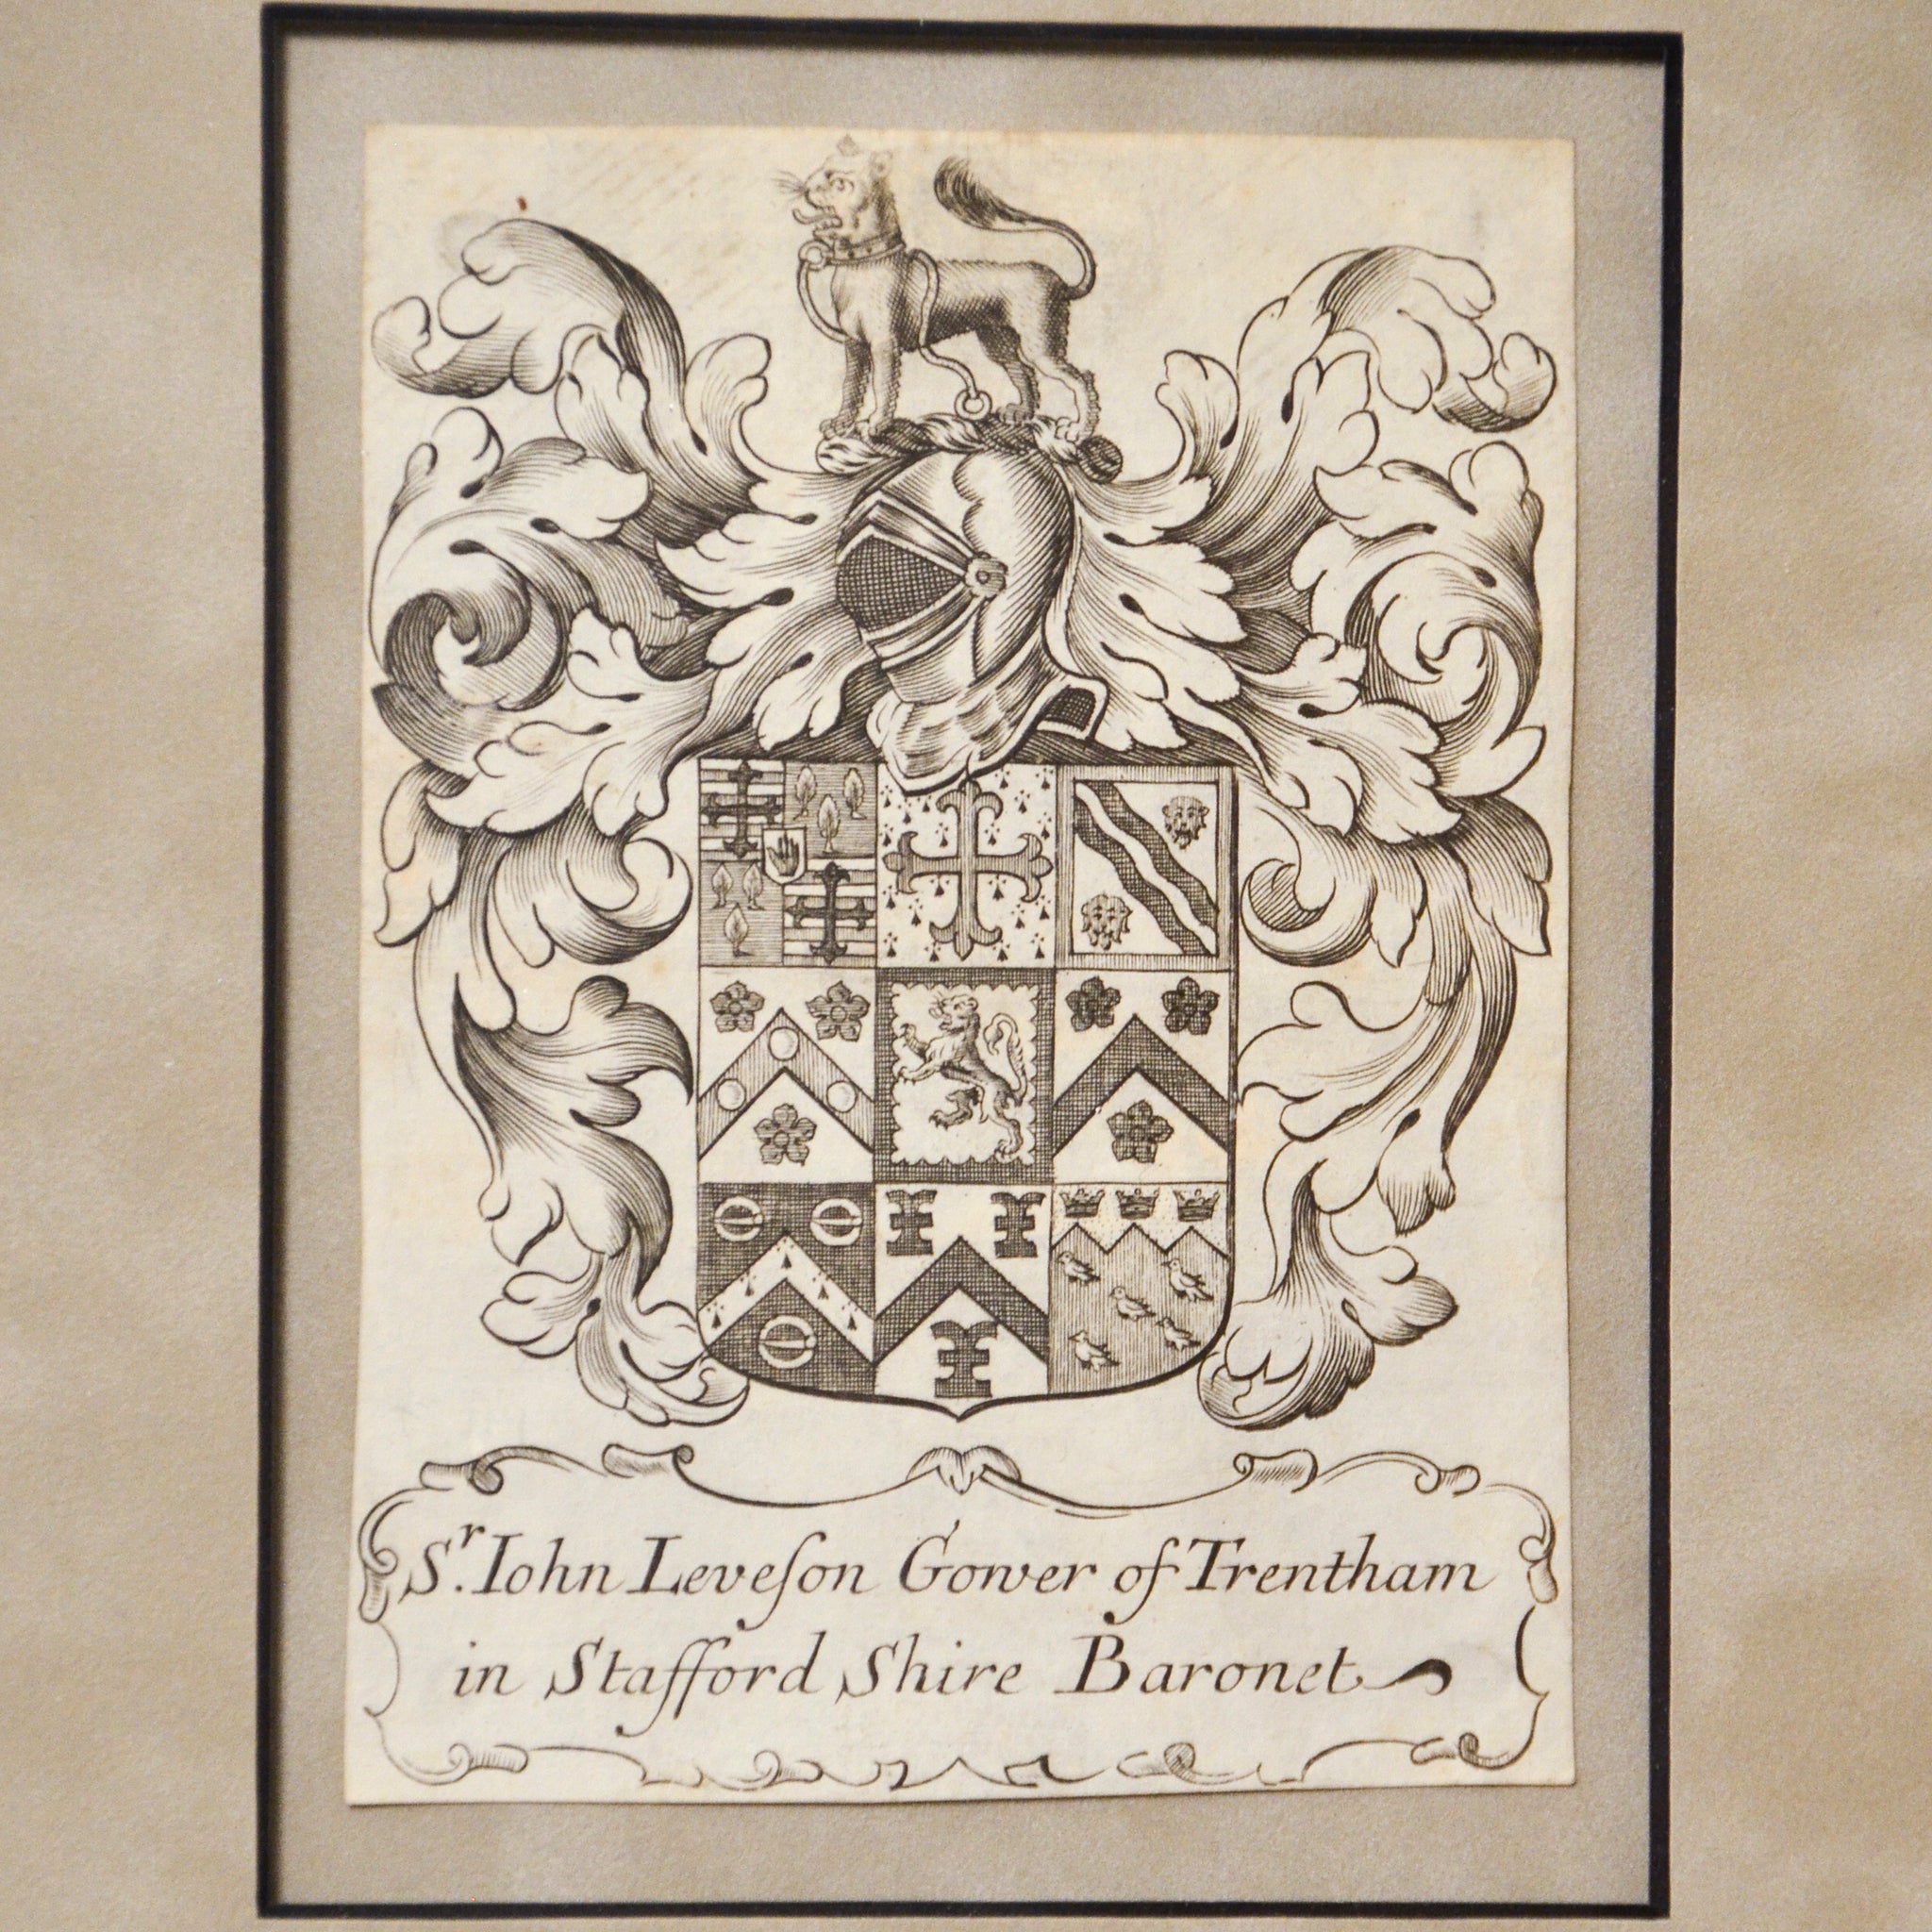 Sr. Iohn Leveſon Gower of Trentham
in Stafford Shire Baronet